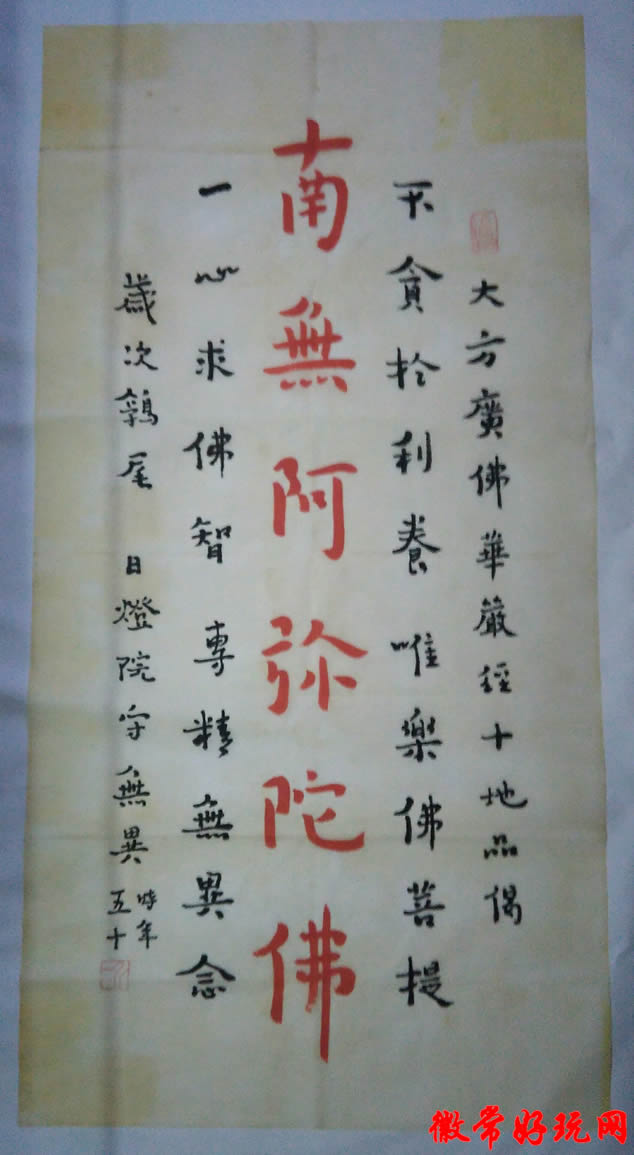 大方廣佛華嚴經十地品偈
不貪於利養唯樂佛菩提
南無阿弥陀佛
一心求佛智專精無異念
歲次鶉尾 日燈院守無異時年五十
徽常好玩网